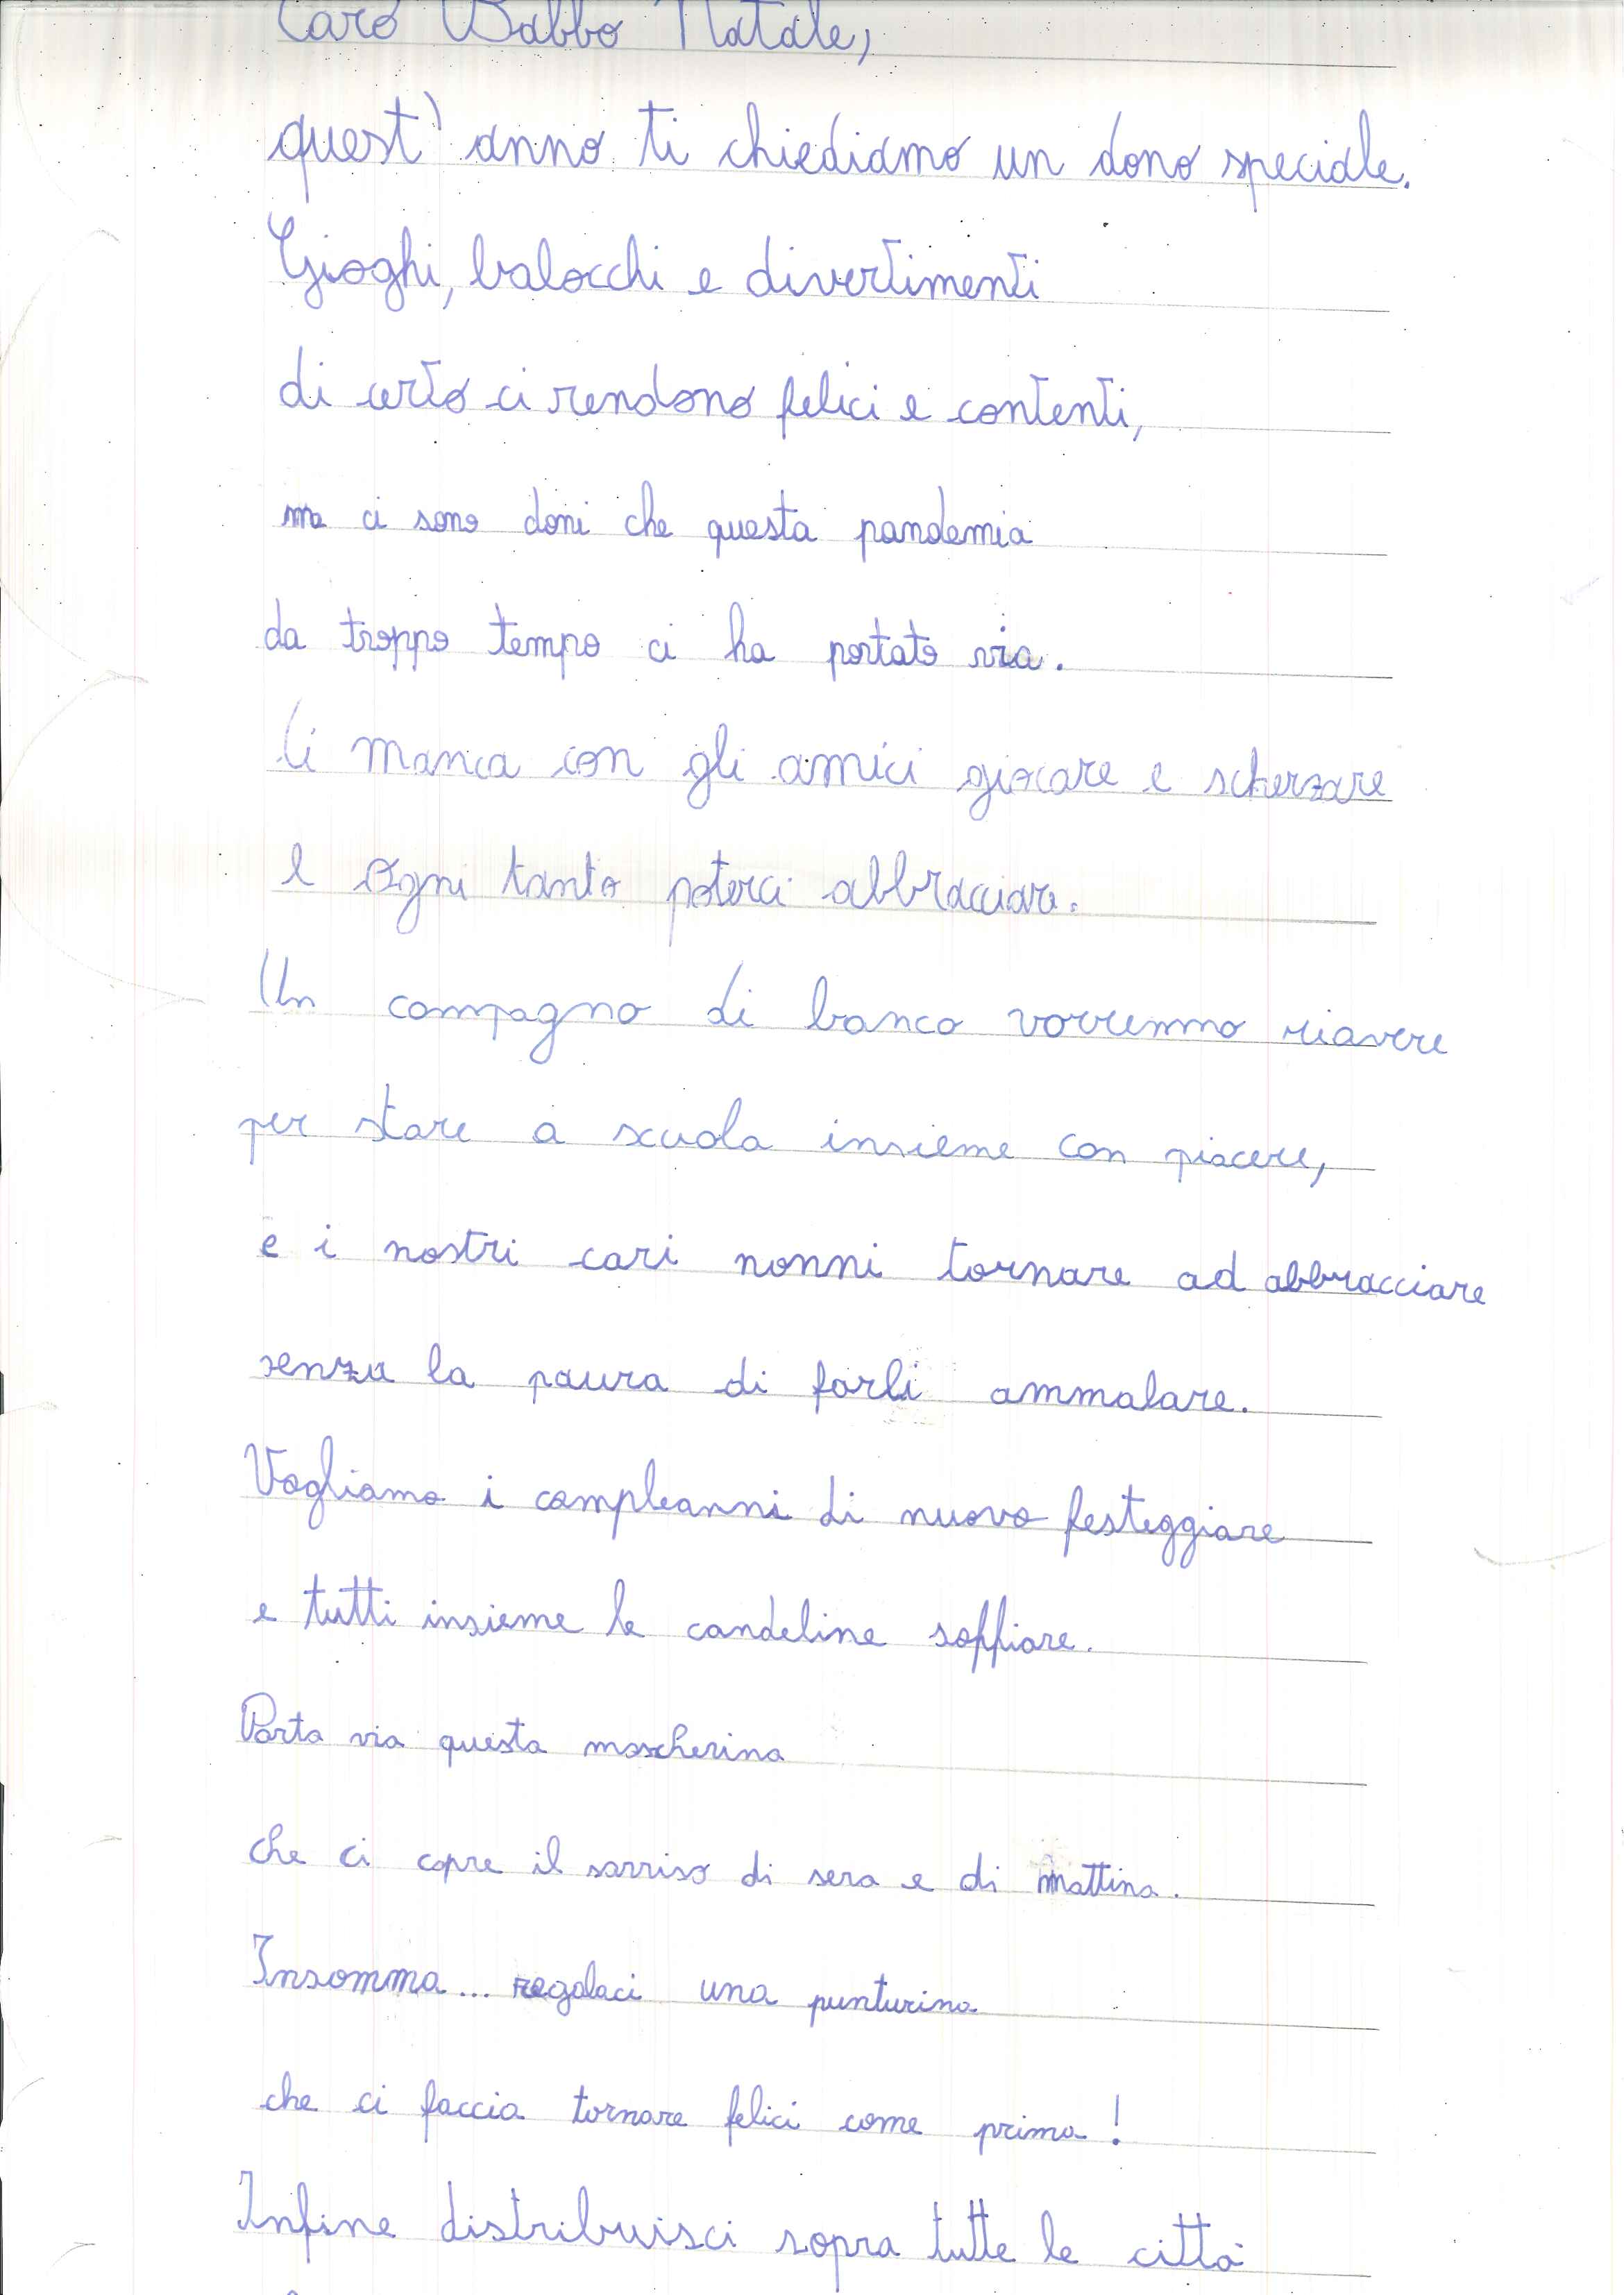 Caro Babbo Natale,
quest'anno ti chiediamo un dono speciale.
Gioghi, balocchi e divertimenti
di certo ci rendono felici e contenti,
ma ci sono doni che questa pandemia
da troppo tempo ci ha portato via.
Ci manca con gli amici giocare e scherzare
e ogni tanto poterci abbracciare.
Un compagno di banco vorremmo riavere
per stare a scuola insieme con piacere,
e i nostri cari nonni tornare ad abbracciare
senza la paura di farli ammalare.
Vogliamo i compleanni di nuovo festeggiare
e tutti insieme le candeline soffiare.
Porta via questa mascherina
che ci copre il sorriso di sera e di mattina.
Insomma... regalaci una punturina
che ci faccia tornare felici come prima!
Infine distribuisci sopra tutte le città